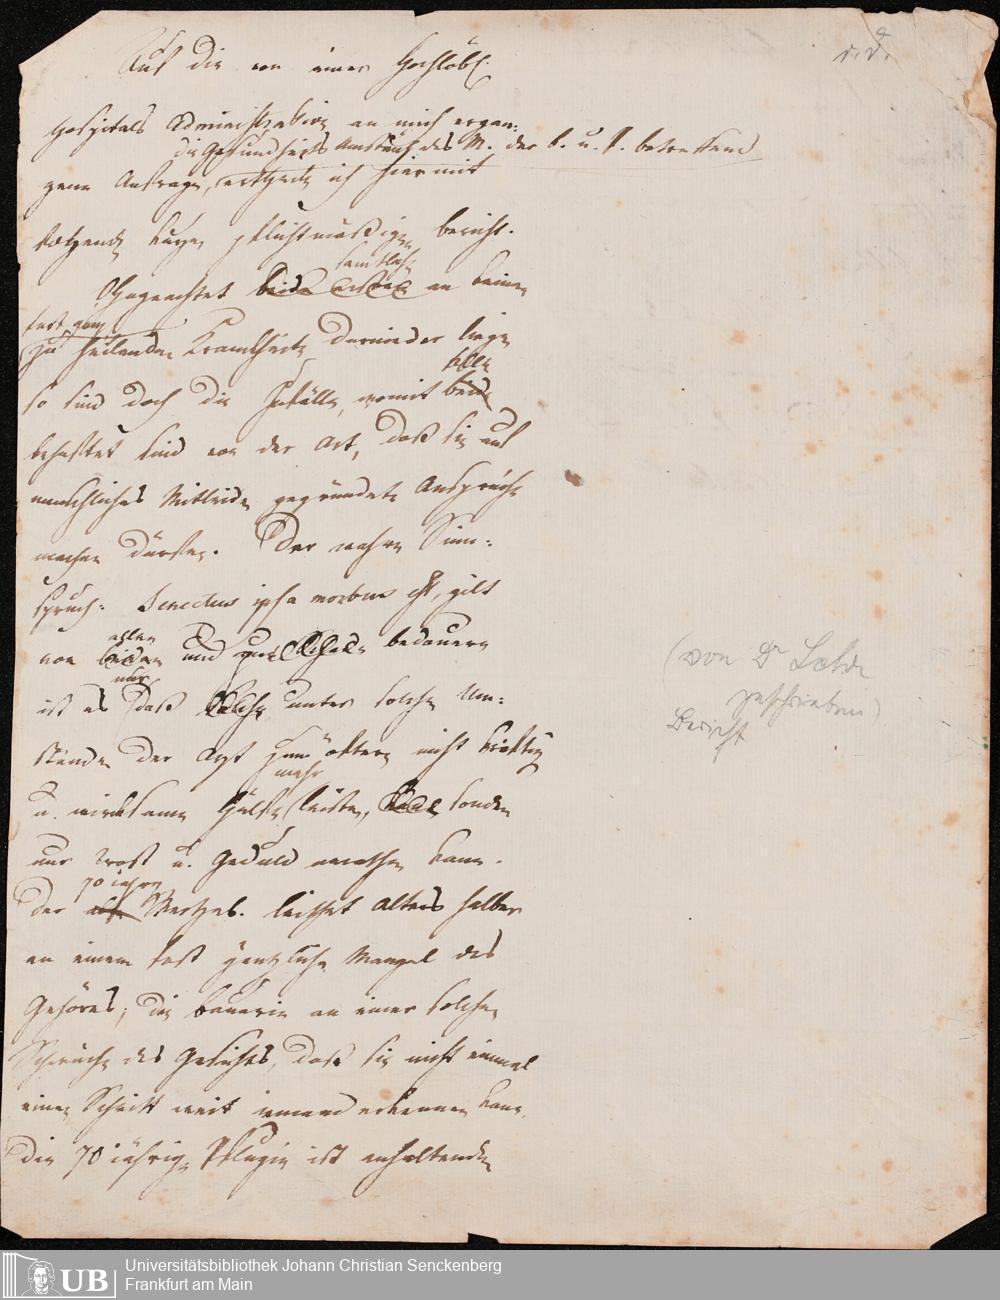 Auf die von einer Hochlöbl.
Hospitals Administration an mich ergan-
die Gesundheits Umstände des M. der B. u. P. betreffend
gene Anfrage, ertheile ich hiermit
folgende kurze pflichtmäßige bericht.
sämtlich
Ohngeachtet beide an keiner
fast ganz
zu heilenden Krankheit darnieder liegen
alle
so sind doch die Zufälle, womit beide
behaftet sind von der Art, daß sie auf
menschliches Mitleiden gegründete Ansprüche
machen dürfen. Der wahre Sinn-
spruch: Senectus ipsa morbus est, gilt
allen
von beiden und bedauern
nur
ist es daß unter solchen Um-
ständen der Arzt zum öftern nicht kräftig
mehr
u. wirksame Hülfe leisten, sondern
nur Trost u. Geduld anrathen kann.
70 jähr
Der alte leidet Alters halber
an einem fast gänzlichen Mangel des
Gehöres; die bauerin an einer solchen
Schwäche des Gesichts, daß sie nicht einmal
einen Schritt weit jemand erkennen kann.
die 70 jährige Pflugin ist anhaltenden
(von Dr
geschrieben)
Bericht
Universitätsbibliothek Johann Christian Senckenberg
UB
Frankfurt am Main